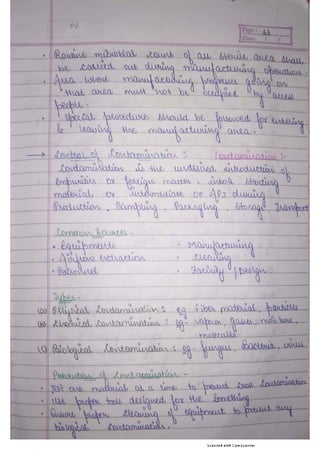 Page: 63
Date: / /
• Routine microbial count of all sterile area shall
be carried out during manufacturing operation.
• Area where manufacturing progress going on
that area must not be by access
people.
• Special procedure should be followed for entering
& leaving the manufacturing area.
→ Control of Contamination : Contamination :-
Contamination is the undesired introduction of
impurities or foreign matter, starting
material or intermediate or API during
Production, Sampling, Packaging, Storage, Transport
Common Sources -
• Equipments • Manufacturing
• Airflow extraction • Cleaning
• Personnel • Facility / Design
Types -
(a) Physical Contamination : eg. Fiber material, particles
(b) Chemical Contamination : eg- vapour, gases, moisture,
molecules.
(c) Biological Contamination : eg fungus, Bacteria, virus
Prevention of Contamination -
• Test one material at a time to prevent cross Contamination
• Use proper designed for the Sampling
• Ensure proper cleaning of equipment to prevent any
biological Contamination.
Scanned with CamScanner